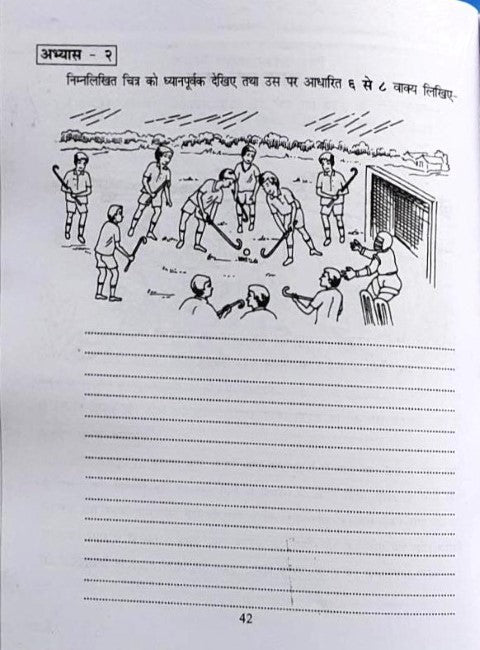 अभ्यास - २
निम्नलिखित चित्र को ध्यानपूर्वक देखिए तथा उस पर आधारित ६ से ८ वाक्य लिखिए-
42